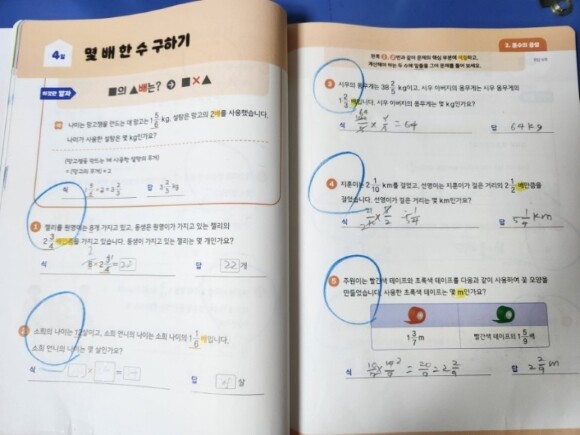 4일
몇 배 한 수 구하기
■의 ▲배는? ➔ ■×▲
나미는 망고잼을 만드는 데 망고는 1 5/6 kg, 설탕은 망고의 2배를 사용했습니다.
나미가 사용한 설탕은 몇 kg인가요?
(망고잼을 만드는 데 사용한 설탕의 무게)
=(망고의 무게)×2
식
답 3 2/3 kg
젤리를 원영이는 8개 가지고 있고, 동생은 원영이가 가지고 있는 젤리의
2 3/4배만큼을 가지고 있습니다. 동생이 가지고 있는 젤리는 몇 개인가요?
식 =22
답 22개
소희의 나이는 12살이고, 소희 언니의 나이는 소희 나이의 1 1/6배입니다.
소희 언니의 나이는 몇 살인가요?
식
답 살
2. 분수의 곱셈
왼쪽 ❶, ❷번과 같이 문제의 핵심 부분에 색칠하고,
계산해야 하는 두 수에 밑줄을 그어 문제를 풀어 보세요.
3 시우의 몸무게는 38 2/5 kg이고, 시우 아버지의 몸무게는 시우 몸무게의
1 2/3배입니다. 시우 아버지의 몸무게는 몇 kg인가요?
식 = 64
답 64 kg
4 지훈이는 2 1/10 km를 걸었고, 선영이는 지훈이가 걸은 거리의 2 1/2배만큼을
걸었습니다. 선영이가 걸은 거리는 몇 km인가요?
식
답 5 1/4 km
5 주원이는 빨간색 테이프와 초록색 테이프를 다음과 같이 사용하여 꽃 모양을
만들었습니다. 사용한 초록색 테이프는 몇 m인가요?
1 3/7 m
빨간색 테이프의 1 5/9배
식 10/7 × 14/9 = 20/9 = 2 2/9
답 2 2/9 m